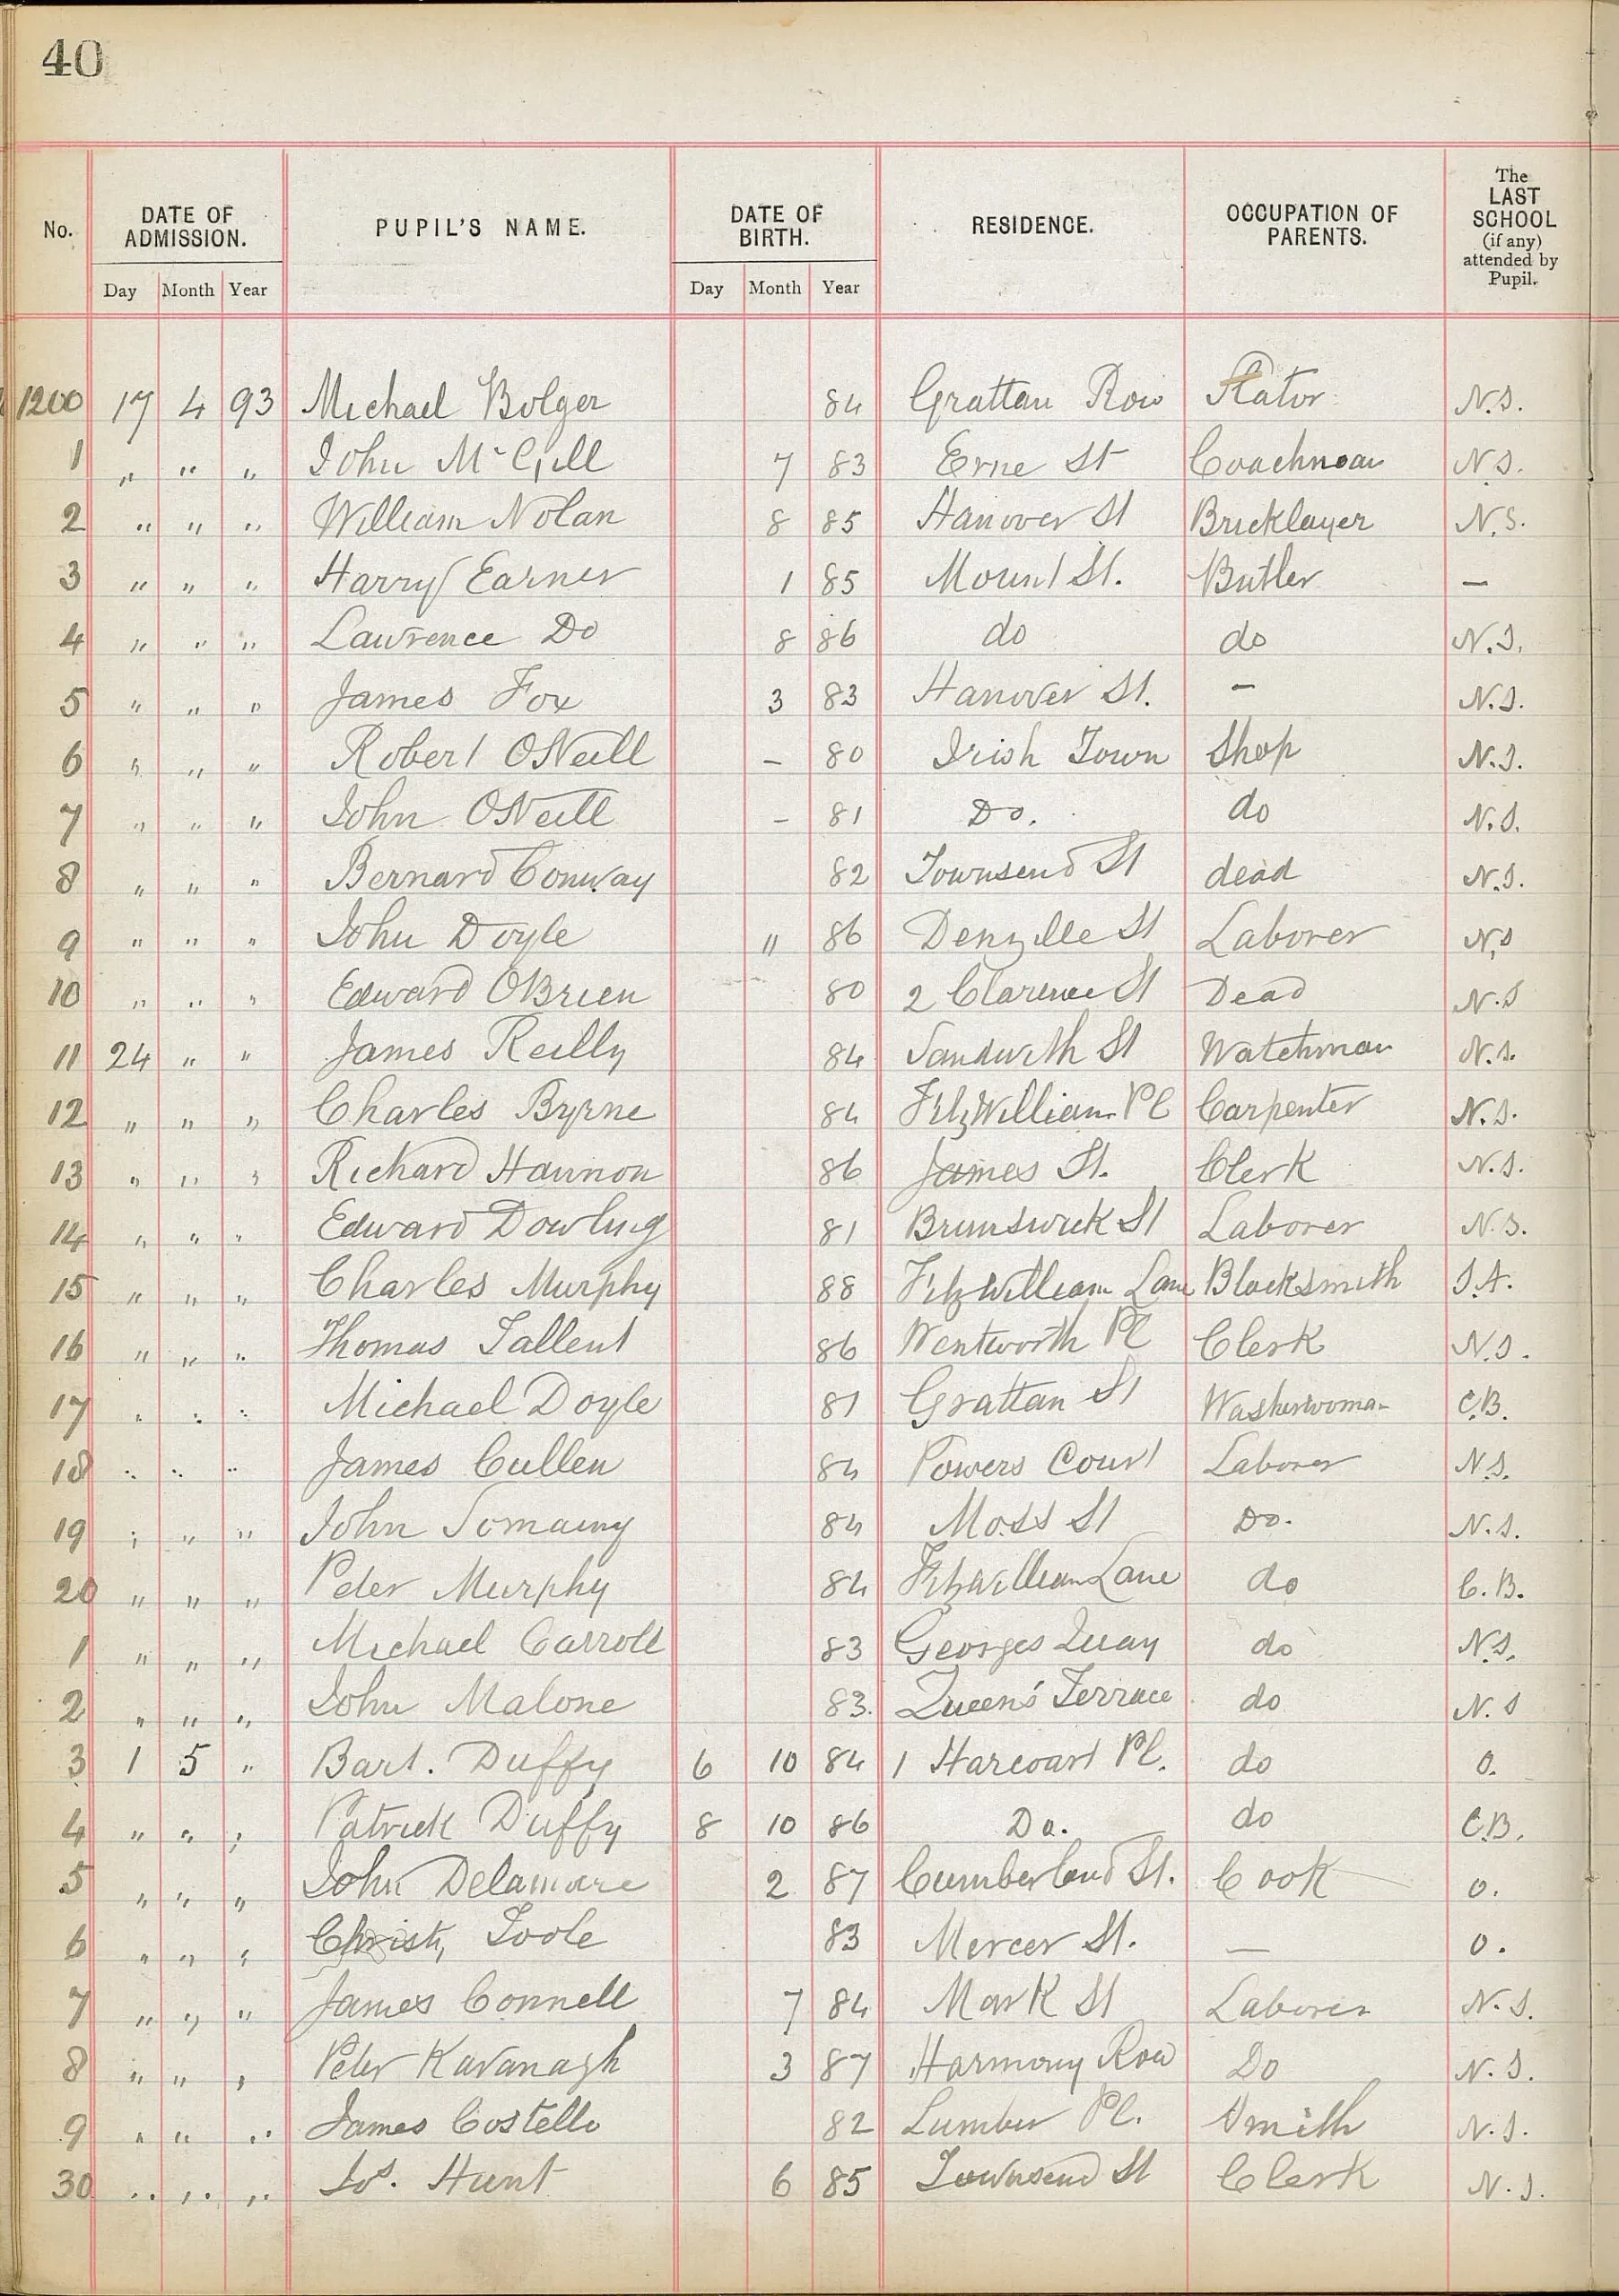 40
No. DATE OF ADMISSION. PUPIL'S NAME. DATE OF BIRTH. RESIDENCE. OCCUPATION OF PARENTS. The LAST SCHOOL (if any) attended by Pupil.
Day Month Year Day Month Year
1200 17 4 93 Michael Bolger 84 Grattan Row Slator N.S.
1 " " " John McGill 7 83 Erne St Coachman N.S.
2 " " " William Nolan 8 85 Hanover St Bricklayer N.S.
3 " " " Harry Earner 1 85 Mount St. Butler —
4 " " " Lawrence Do 8 86 do do N.S.
5 " " " James Fox 3 83 Hanover St. – N.S.
6 " " " Robert ONeill – 80 Irish Town Shop N.S.
7 " " " John ONeill – 81 Do. do N.S.
8 " " " Bernard Conway 82 Townsend St dead N.S.
9 " " " John Doyle " 86 Denzille St Laborer N.S
10 " " " Edward OBrien 80 2 Clarence St Dead N.S
11 24 " " James Reilly 84 Sandwith St Watchman N.S.
12 " " " Charles Byrne 84 FitzWilliam Pl Carpenter N.S.
13 " " " Richard Hannon 86 James St. Clerk N.S.
14 " " " Edward Dowling 81 Brunswick St Laborer N.S.
15 " " " Charles Murphy 88 Fitzwilliam Lane Blacksmith
16 " " " Thomas Tallent 86 Wentworth Pl Clerk N.S.
17 " " " Michael Doyle 81 Grattan St Washerwoman C.B.
18 " " " James Cullen 84 Powers Court Laborer N.S.
19 " " " John 84 Moss St Do. N.S.
20 " " " Peter Murphy 84 Fitzwilliam Lane do C.B.
1 " " " Michael Carroll 83 Georges Quay do N.S.
2 " " " John Malone 83. Queen's Terrace do N.S
3 1 5 " Bart. Duffy 6 10 84 1 Harcourt Pl. do O.
4 " " " Patrick Duffy 8 10 86 Do. do C.B.
5 " " " John Delamare 2 87 Cumberland St. Cook O.
6 " " " Christy Toole 83 Mercer St. — O.
7 " " " James Connell 7 84 Mark St Laborer N.S.
8 " " " Peter Kavanagh 3 87 Harmony Row Do N.S.
9 " " " James Costello 82 Lumber Pl. Smith N.S.
30 " " " Jos. Hunt 6 85 Townsend St Clerk N.S.